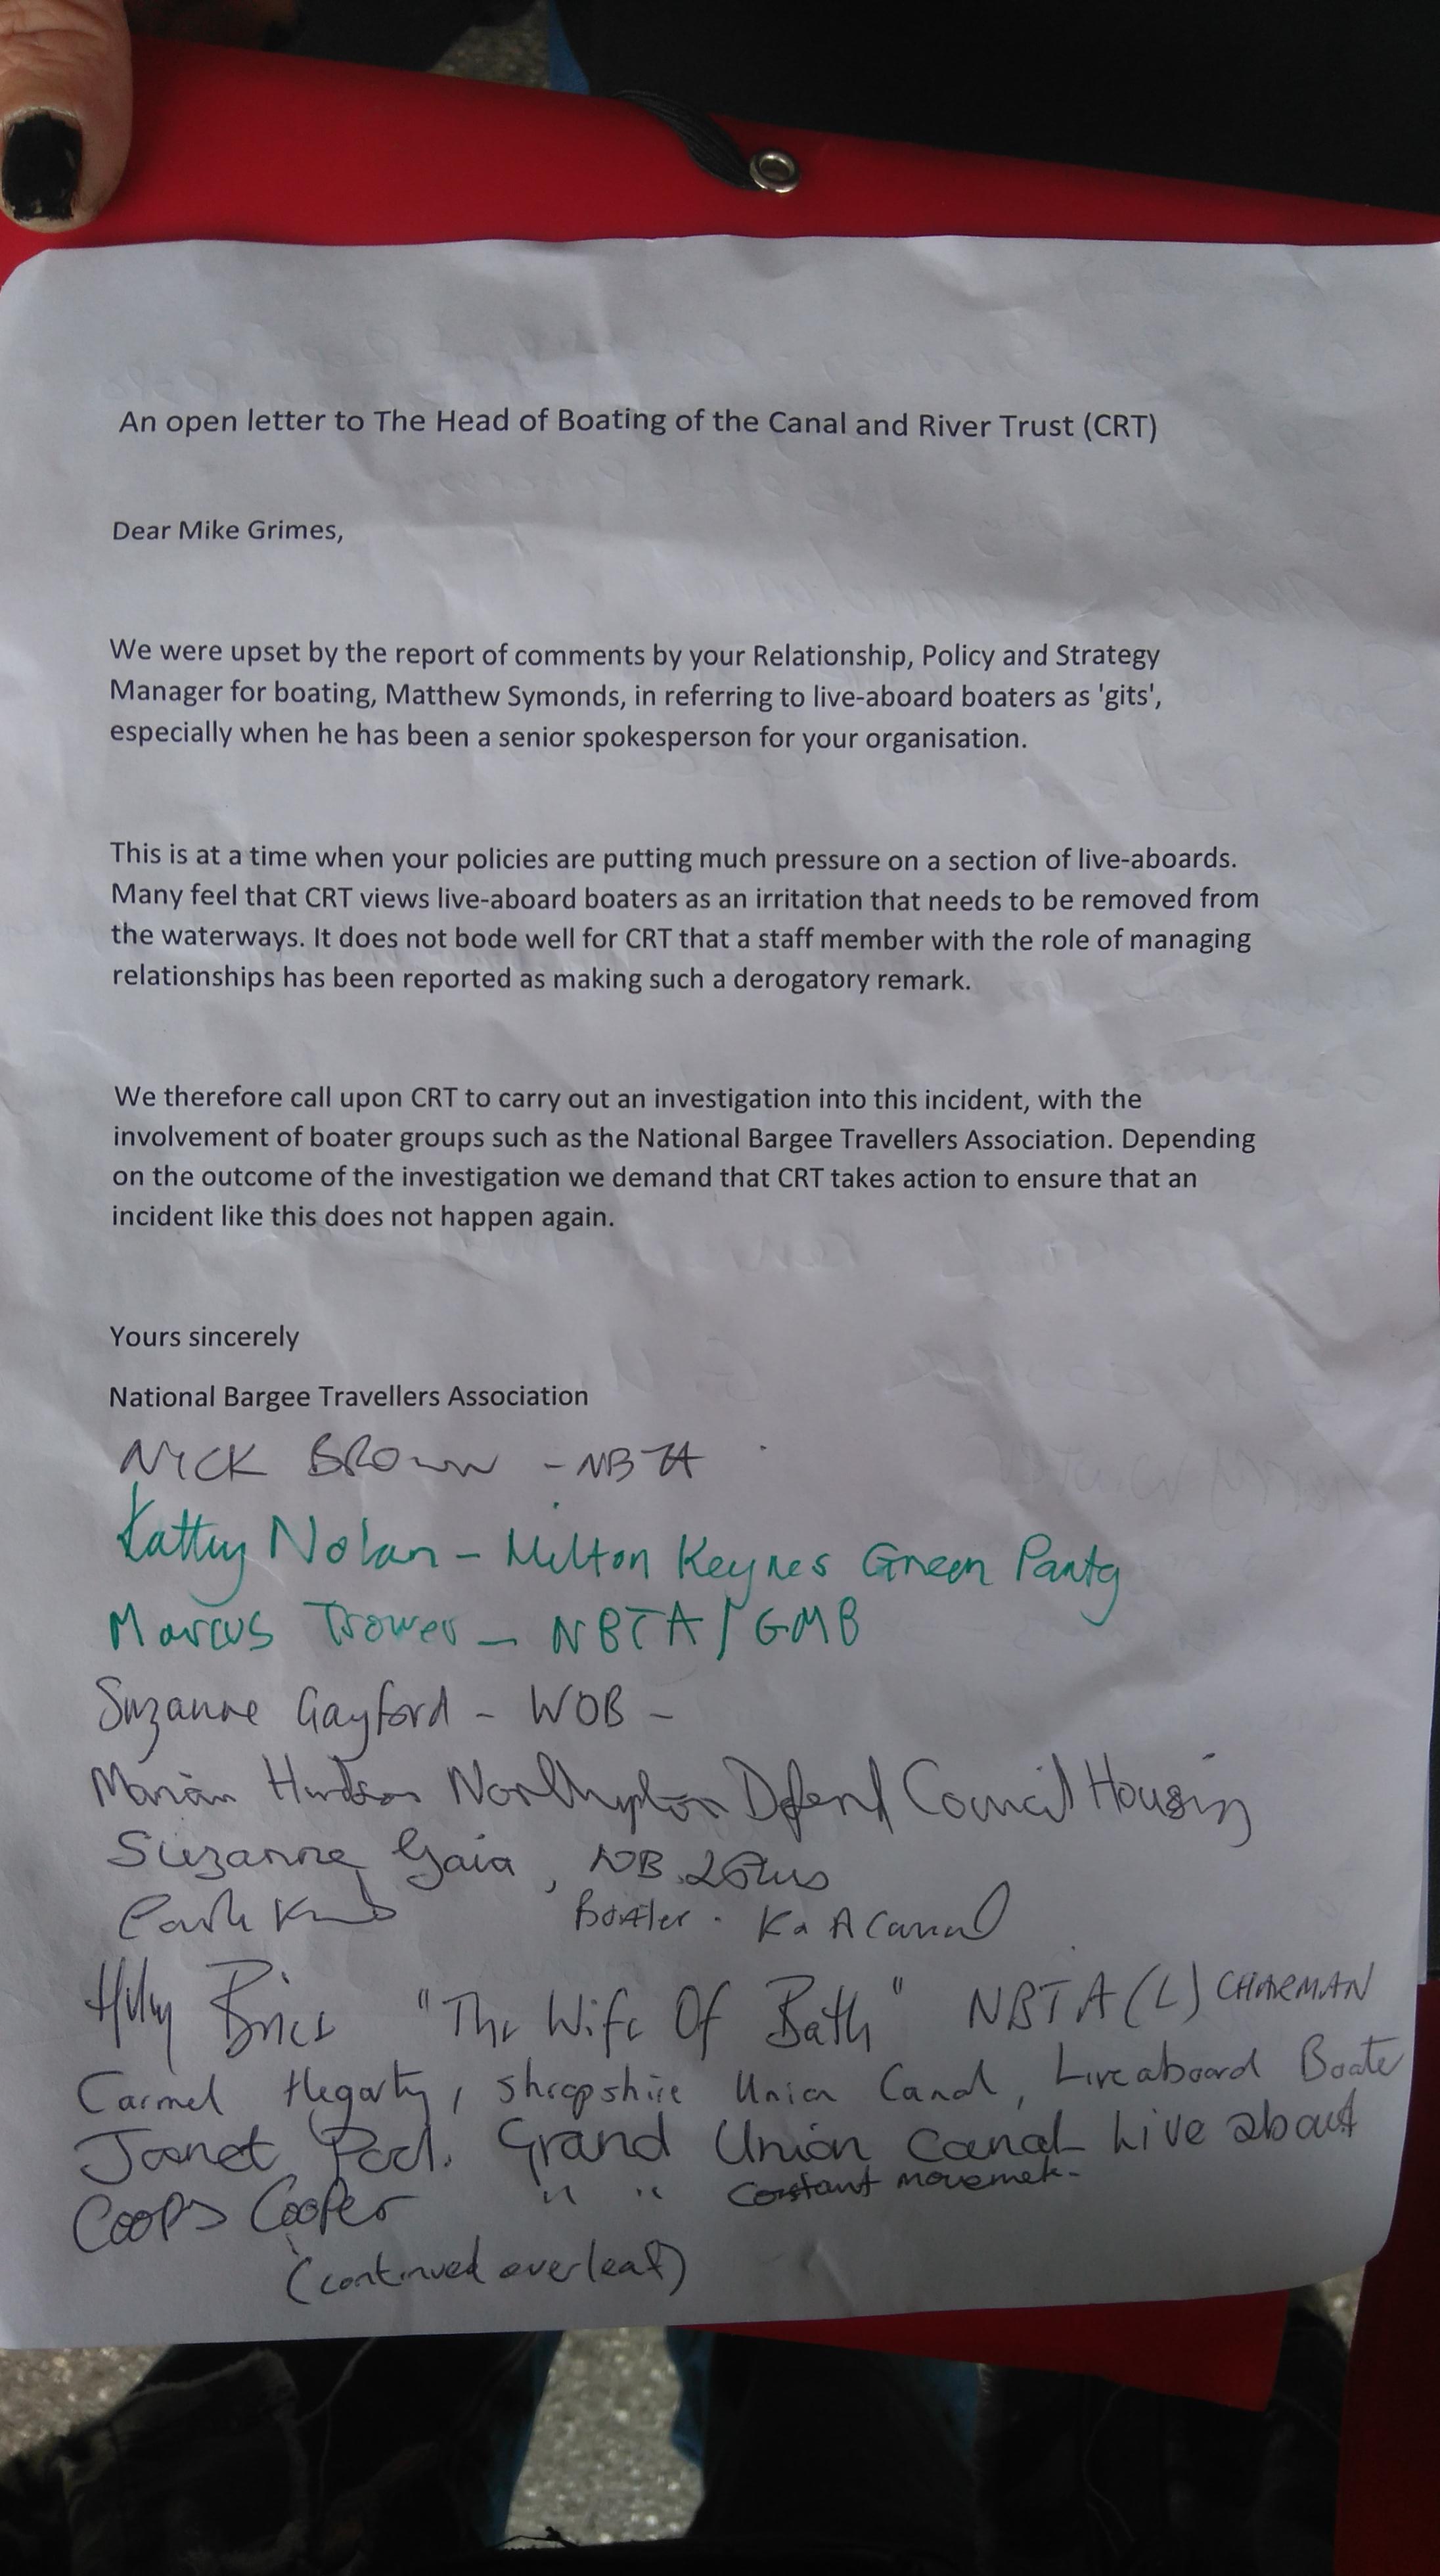 An open letter to The Head of Boating of the Canal and River Trust (CRT)
Dear Mike Grimes,
We were upset by the report of comments by your Relationship, Policy and Strategy
Manager for boating, Matthew Symonds, in referring to live-aboard boaters as 'gits',
especially when he has been a senior spokesperson for your organisation.
This is at a time when your policies are putting much pressure on a section of live-aboards.
Many feel that CRT views live-aboard boaters as an irritation that needs to be removed from
the waterways. It does not bode well for CRT that a staff member with the role of managing
relationships has been reported as making such a derogatory remark.
We therefore call upon CRT to carry out an investigation into this incident, with the
involvement of boater groups such as the National Bargee Travellers Association. Depending
on the outcome of the investigation we demand that CRT takes action to ensure that an
incident like this does not happen again.
Yours sincerely
National Bargee Travellers Association
NICK BROWN - NBTA
Nolan - Milton Keynes Green Party
Marcus Trower - NBTA/GMB
Suzanne Gayford - WOB -
Marian Hudson Northampton Defend Council Housing
Suzanne Gaia, NB Lotus
Boater. K&A Canal
"The Wife Of Bath" NBTA(L) CHAIRMAN
Carmel Hegarty, Shropshire Union Canal, Liveaboard Boater
Janet Grand Union Canal Live
Coops Cooper " " Constant
(continued overleaf)